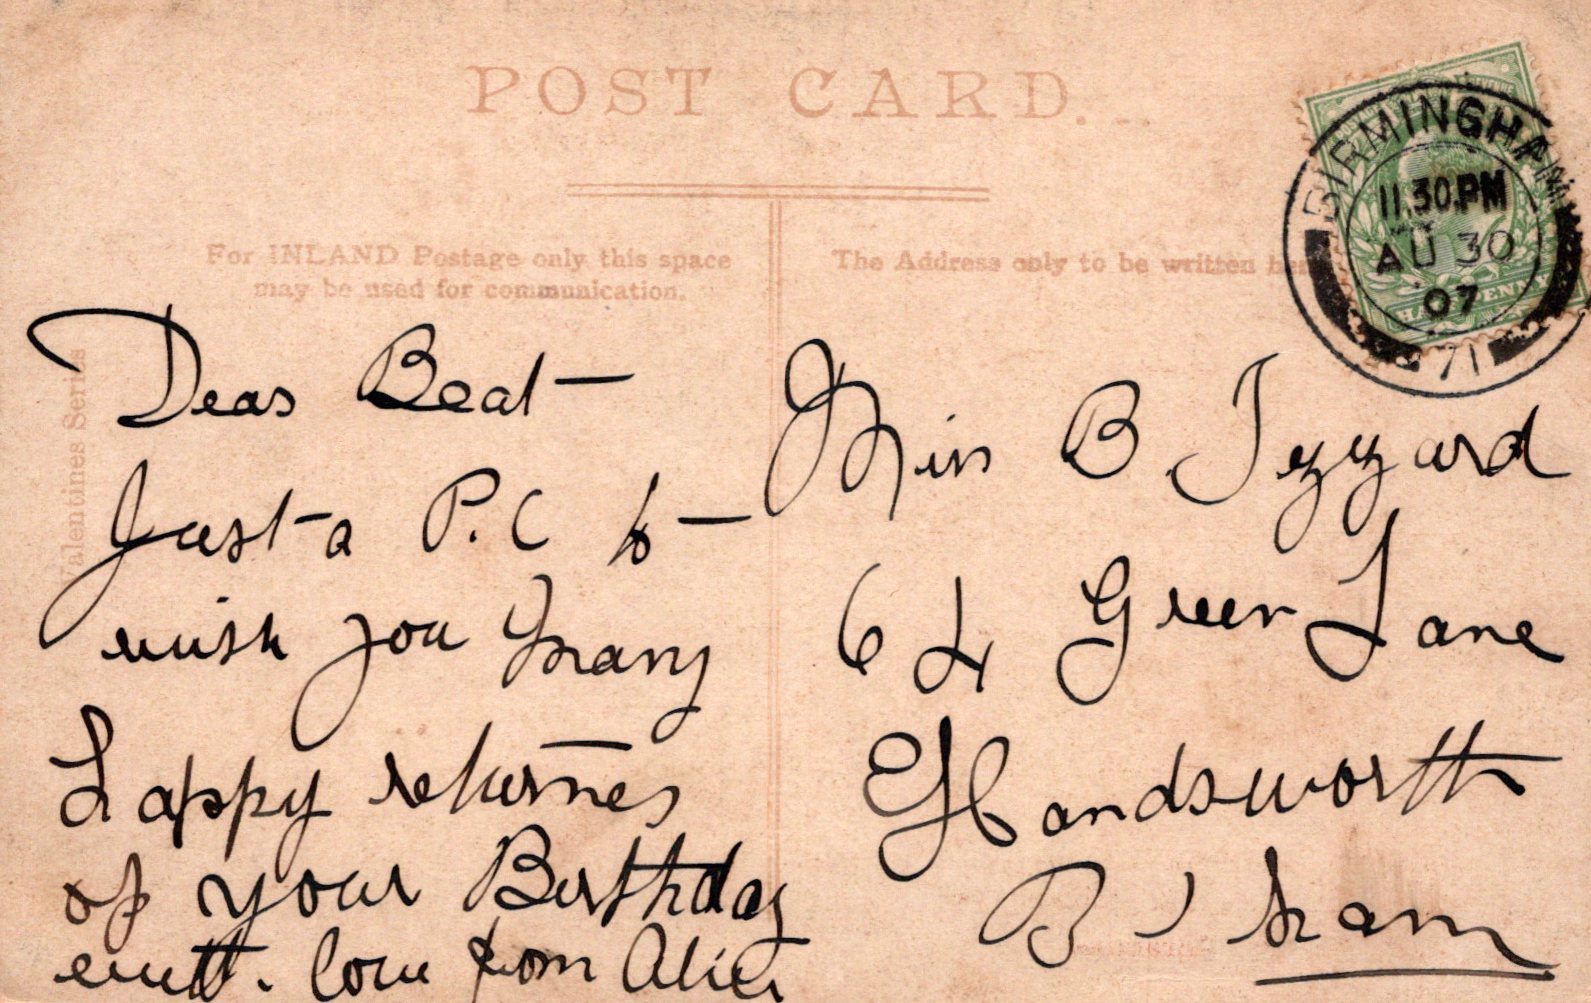 POST CARD.
For INLAND Postage only this space
may be used for communication.
The Address only to be written here
Valentines Series
BIRMINGHAM
11.30.PM
AU 30
07
71
HALFPENNY
Dear Beat—
Just a P.C to—
wish you Many
happy returnes
of your Birthday
with. love from Alice
Miss B. Izzard
64 Green Lane
Handsworth
B'ham